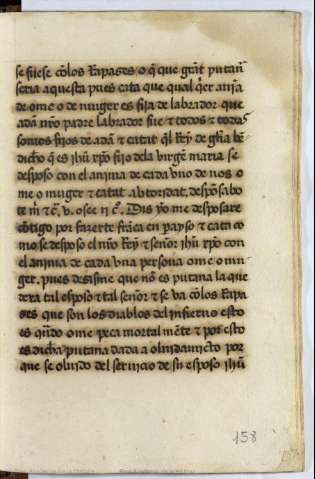 se fuese cõlos Rapases o q̃ que grãt putañ
seria aquesta pues cata que qual q̃er anĩa
de ome o de muger es fija de labrador que
adã nr̃o padre labrador fue ⁊ todos ⁊ todas
somos fijos de adã ⁊ catat q̃l Rey de gl̃ia bẽ
dicho q̃ es ihũ xp̃o fijo dela virgẽ maria se
desposo con el anima de cada vno de nos o
me o muger ⁊ catat abtoridat, despõsabo
te m̃ ⁊c̃. v. osee ii c̃. Dis yo me desposare
cõtigo por fazerte frãca en payso ⁊ cata co
mo se desposo el nr̃o Rey ⁊ señor ihũ xp̃o con
el anima de cada vna persona ome o mu
ger. pues desisme que nõ es putana la que
dexa tal esposo ⁊ tal señor ⁊ se va cõlos Rapa
ses que son los diablos del infierno esto
es qñdo ome peca mortal mẽte ⁊ por esto
es dicha putana dada a oluidamiẽto por
que se oluido del seruicio de su esposo ihũ
158